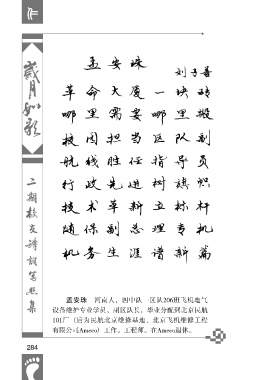 作
岁月如歌
二期校友诗词写照集
孟安珠
刘子善
革命大厦一块砖
哪里需要哪里搬
按因担当区队副
航线胜任指导员
行政先进树旗帜
技术革新立标杆
随保副总理专机
机务生涯谱新篇
孟安珠 河南人，四中队一区队206班飞机电气
设备维护专业学员、副区队长，毕业分配到北京民航
101厂（后为民航北京维修基地、北京飞机维修工程
有限公司Ameco）工作。工程师。在Ameco退休。
284